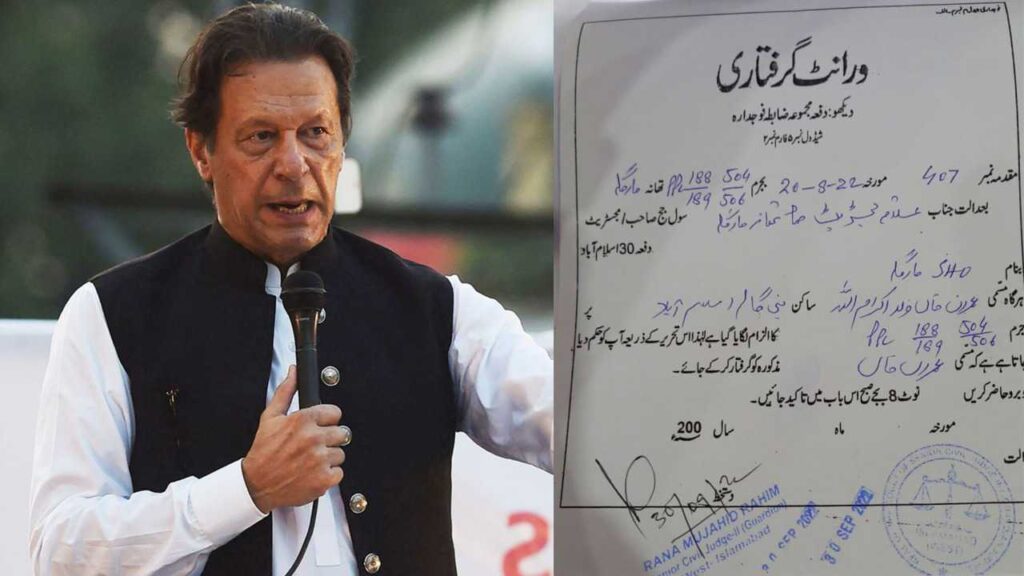 ورانٹ گرفتاری
دیکھو: دفعہ مجموعہ ضابطہ فوجدارہ
شیڈول نمبر ۵ فارم نمبر ۲
مقدمہ نمبر 407 مورخہ 20-8-22 بجرم 504/506 188/189 PPC تھانہ مارگلہ
بعدالت جناب علاقہ مجسٹریٹ تھانہ مارگلہ سول جج صاحب / مجسٹریٹ
دفعہ 30 اسلام آباد
بنام SHO مارگلہ
ہرگاہ مسمی عمران خان ولد اکرام اللہ ساکن بنی گالہ اسلام آباد پر
جرم 504/506 188/189 PPC کا الزام لگایا گیا ہے لہٰذا اس تحریر کے ذریعہ آپ کو حکم دیا
جاتا ہے کہ مسمی عمران خان مذکورہ کو گرفتار کر کے جائے۔
روبرو حاضر کریں نوٹ 8 بجے صبح اس باب میں تاکید جائیں۔
مورخہ ماہ سال 200
30/09/22
RANA MUJAHID RAHIM
Senior Civil Judge-II (Guardian)
West-Islamabad
30 SEP 2022